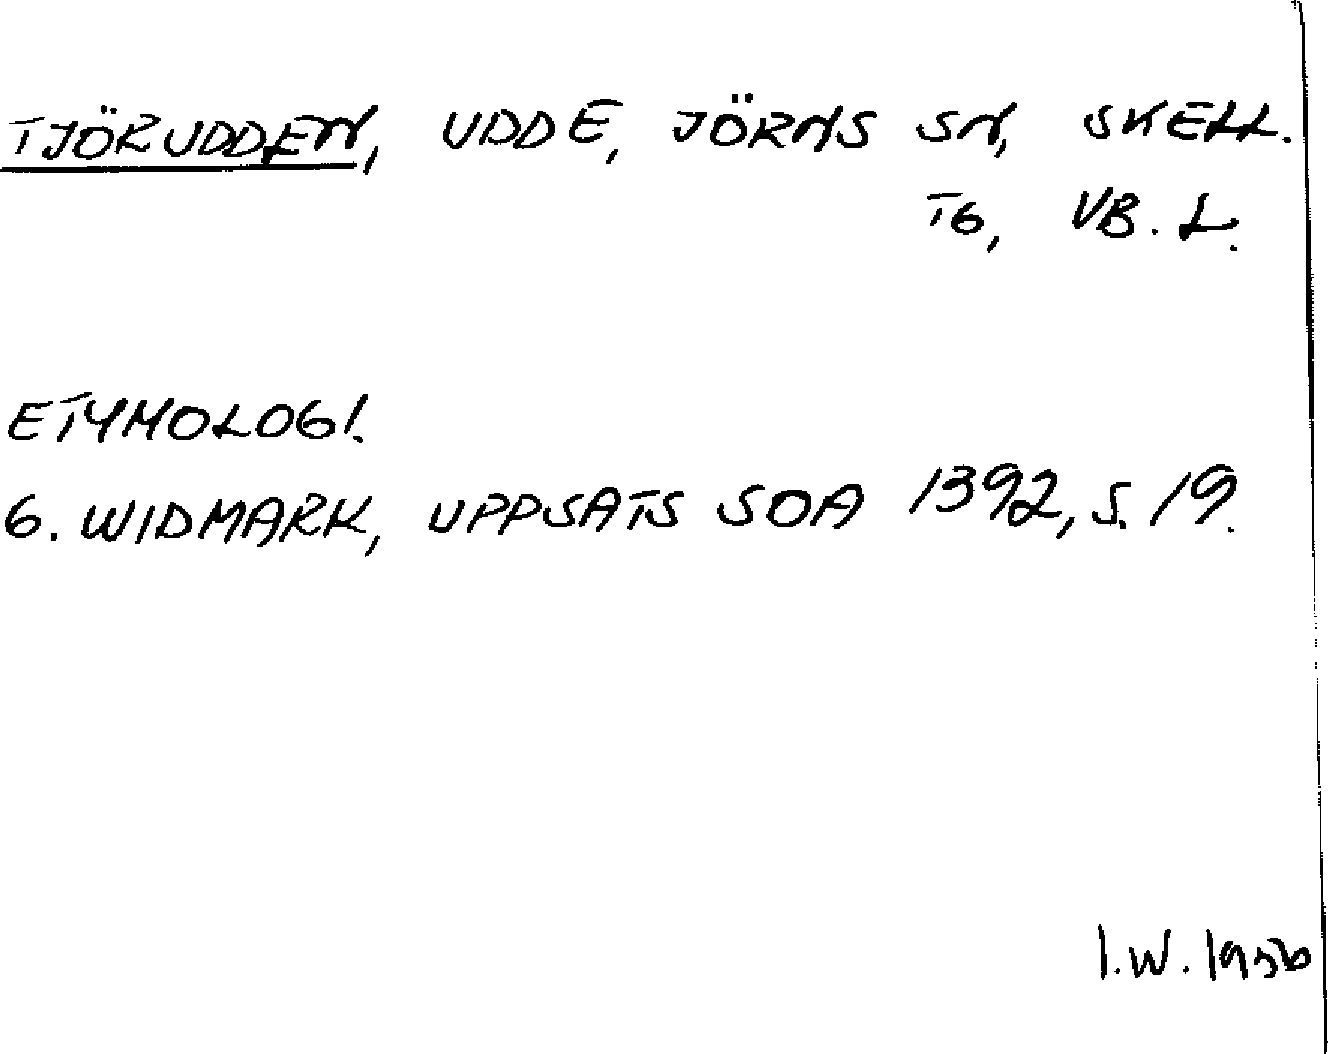 TJÖRUDDEN, UDDE, JÖRNS SN, SKELL.
TG, VB. L.
ETYMOLOGI.
G. WIDMARK, UPPSATS SOA 1392, S. 19.
I.W. 1956